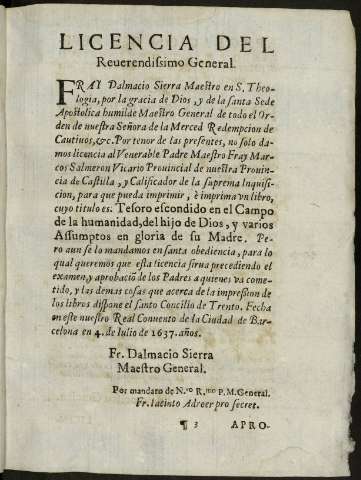 LICENCIA DEL
Reuerendissimo General.
FRAI Dalmacio Sierra Maestro en S. Theo-
logia, por la gracia de Dios, y de la santa Sede
Apostolica humilde Maestro General de todo el Or-
den de nuestra Señora de la Merced Redempcion de
Cautiuos, &c. Por tenor de las presentes, no solo da-
mos licencia al Venerable Padre Maestro Fray Mar-
cos Salmeron Vicario Prouincial de nuestra Prouin-
cia de Castilla, y Calificador de la suprema Inquisi-
cion, para que pueda imprimir, è imprima vn libro,
cuyo titulo es. Tesoro escondido en el Campo
de la humanidad, del hijo de Dios, y varios
Assumptos en gloria de su Madre. Pe-
ro aun se lo mandamos en santa obediencia, para lo
qual queremos que esta licencia sirua precediendo el
examen, y aprobaciõ de los Padres a quienes va come-
tido, y las demas cosas que acerca de la impression de
los libros dispone el santo Concilio de Trento. Fecha
en este nuestro Real Conuento de la Ciudad de Bar-
celona en 4. de Iulio de 1637. años.
Fr. Dalmacio Sierra
Maestro General.
Por mandato de N.ro R.mo P. M. General.
Fr. Iacinto Adroer pro secret.
¶ 3 APRO-